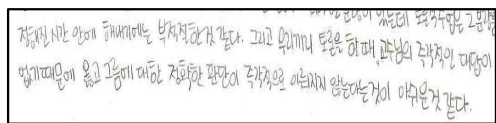 있는데 토론수업은 그 문
정해진 시간 안에 해내기에는 부적절한것 같다. 그리고 우리끼리 토론을 한때 교수님의 즉각적인 대답이
없기때문에 옳고 그름에 대한 정확한 판단이 즉각적으로 이뤄지지 않는다는것이 아쉬운것 같다.